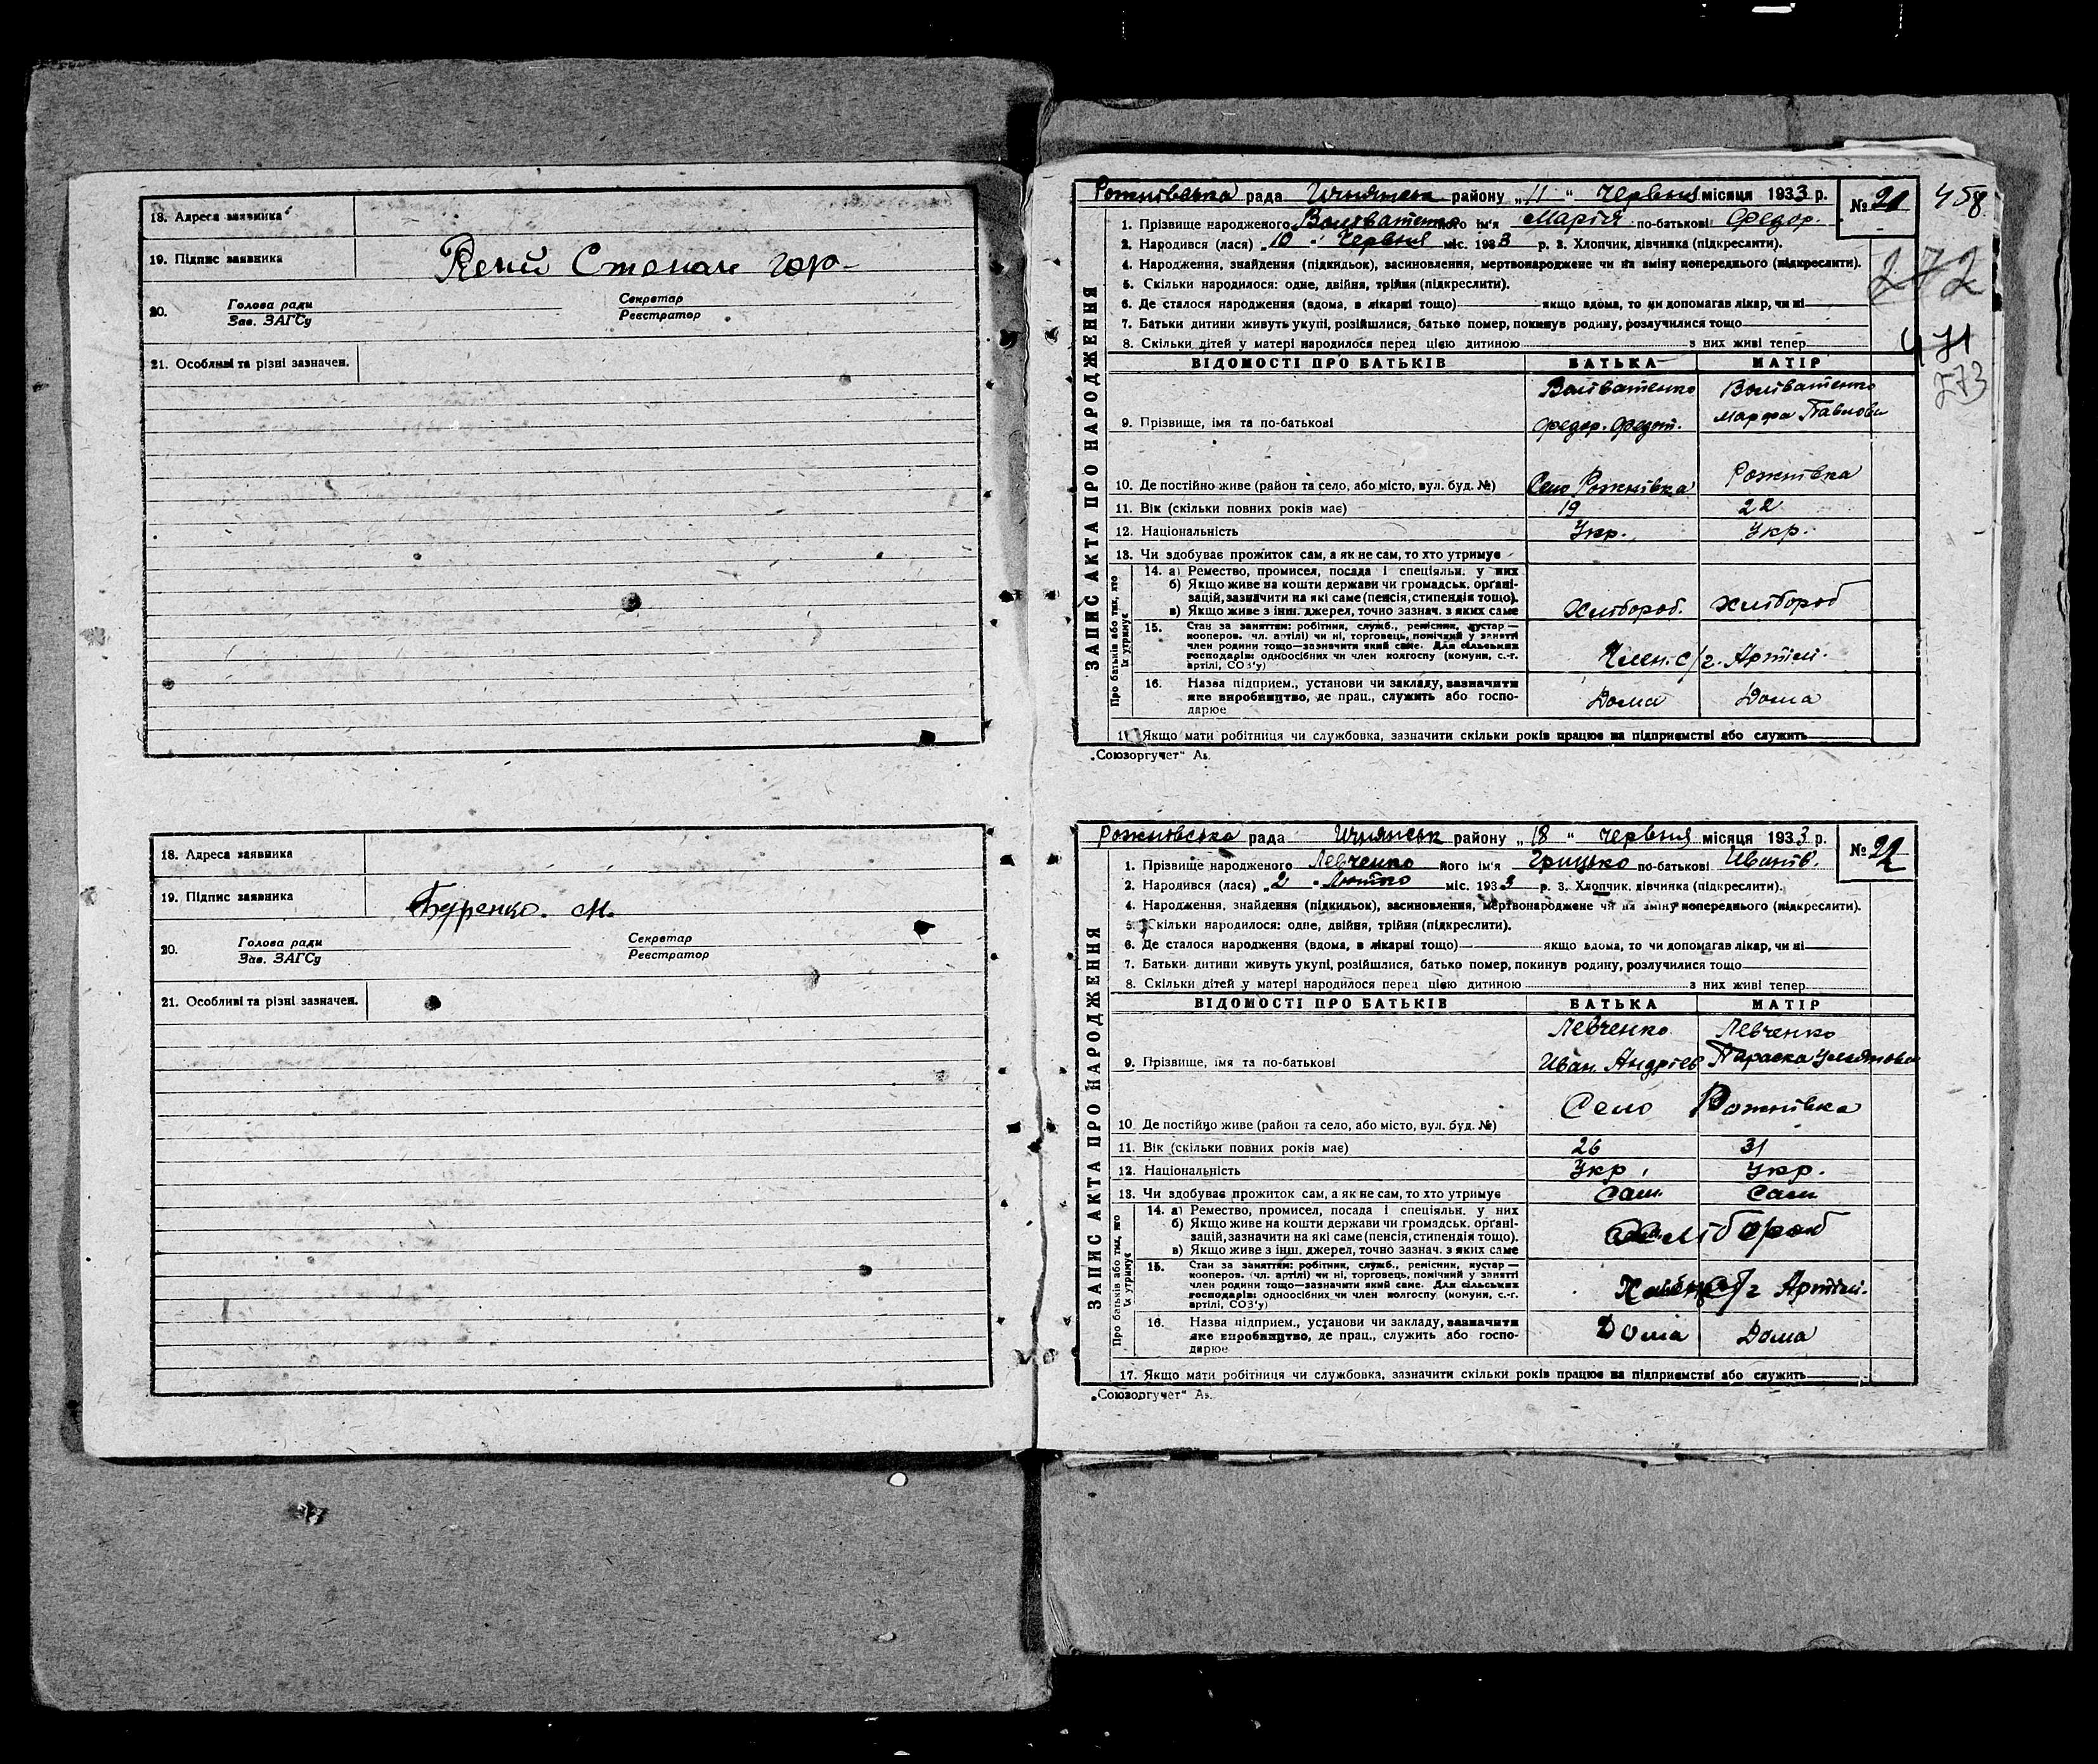 18. Адреса заявника
19. Підпис заявника
Степан
20. Голова ради
Зав. ЗАГСу
Секретар
Реєстратор
21. Особливі та різні зазначен.
18. Адреса заявника
19. Підпис заявника
Буренко. М.
20. Голова ради
Зав. ЗАГСу
Секретар
Реєстратор
21. Особливі та різні зазначен.
458
272
471
273
ЗАПИС АКТА ПРО НАРОДЖЕННЯ
Рожнівська рада Ичнянськ району „11 “ Червня місяця 1933 р. № 21
1. Прізвище народженого його ім'я Марія по-батькові Федор.
2. Народився (лася) „10 “ Червня міс. 1933 р. 3. Хлопчик, дівчинка (підкреслити).
4. Народження, знайдення (підкидьок), засиновлення, мертвонароджене чи на зміну попереднього (підкреслити).
5. Скільки народилося: одне, двійня, трійня (підкреслити).
6. Де сталося народження (вдома, в лікарні тощо) якщо вдома, то чи допомагав лікар, чи ні
7. Батьки дитини живуть укупі, розійшлися, батько помер, покинув родину, розлучилися тощо
8. Скільки дітей у матері народилося перед цією дитиною з них живі тепер
ВІДОМОСТІ ПРО БАТЬКІВ БАТЬКА МАТІР
9. Прізвище, імя та по-батькові Федор. Федот. Марфа Павлови
10. Де постійно живе (район та село, або місто, вул. буд. №) Село Рожнівка Рожнівка
11. Вік (скільки повних років має) 19 22
12. Національність Укр. Укр.
13. Чи здобуває прожиток сам, а як не сам, то хто утримує
Про батьків або тих, хто їх утримує
14. а) Ремество, промисел, посада і спеціяльн. у них
б) Якщо живе на кошти держави чи громадськ. органі-
зацій, зазначити на які саме (пенсія, стипендія тощо).
в) Якщо живе з інш. джерел, точно зазнач. з яких саме Хлібороб. Хлібороб
15. Стан за заняттям: робітник, служб., ремісник, кустар —
кооперов. (чл. артілі) чи ні, торговець, помічний у занятті
член родини тощо—зазначити який саме. Для сільських
господарів: одноосібних чи член колгоспу (комуни, с.-г.
артілі, СОЗ'у) Член. с/г. Артілі.
16. Назва підприєм., установи чи закладу, зазначити
яке виробництво, де прац., служить або госпо-
дарює Дома Дома
17. Якщо мати робітниця чи службовка, зазначити скільки років працює на підприємстві або служить
„Союзоргучет“
ЗАПИС АКТА ПРО НАРОДЖЕННЯ
Рожновська рада Ичнянськ району „18 “ Червня місяця 1933 р. № 22
1. Прізвище народженого Левченко його ім'я Грицько по-батькові Иванів.
2. Народився (лася) „2 “ Лютго міс. 1933 р. 3. Хлопчик, дівчинка (підкреслити).
4. Народження, знайдення (підкидьок), засиновлення, мертвонароджене чи на зміну попереднього (підкреслити).
5. Скільки народилося: одне, двійня, трійня (підкреслити).
6. Де сталося народження (вдома, в лікарні тощо) якщо вдома, то чи допомагав лікар, чи ні
7. Батьки дитини живуть укупі, розійшлися, батько помер, покинув родину, розлучилися тощо
8. Скільки дітей у матері народилося перед цією дитиною з них живі тепер
ВІДОМОСТІ ПРО БАТЬКІВ БАТЬКА МАТІР
Левченко Левченко
9. Прізвище, імя та по-батькові Иван Андріев Параска
Село Рожнівка
10. Де постійно живе (район та село, або місто, вул. буд. №)
11. Вік (скільки повних років має) 26 31
12. Національність Укр. Укр.
13. Чи здобуває прожиток сам, а як не сам, то хто утримує Сам. Сам
Про батьків або тих, хто їх утримує
14. а) Ремество, промисел, посада і спеціяльн. у них
б) Якщо живе на кошти держави чи громадськ. органі-
зацій, зазначити на які саме (пенсія, стипендія тощо).
в) Якщо живе з інш. джерел, точно зазнач. з яких саме Хлібороб
15. Стан за заняттям: робітник, служб., ремісник, кустар —
кооперов. (чл. артілі) чи ні, торговець, помічний у занятті
член родини тощо—зазначити який саме. Для сільських
господарів: одноосібних чи член колгоспу (комуни, с.-г.
артілі, СОЗ'у) с/г Артілі.
16. Назва підприєм., установи чи закладу, зазначити
яке виробництво, де прац., служить або госпо-
дарює Дома Дома
17. Якщо мати робітниця чи службовка, зазначити скільки років працює на підприємстві або служить
„Союзоргучет“